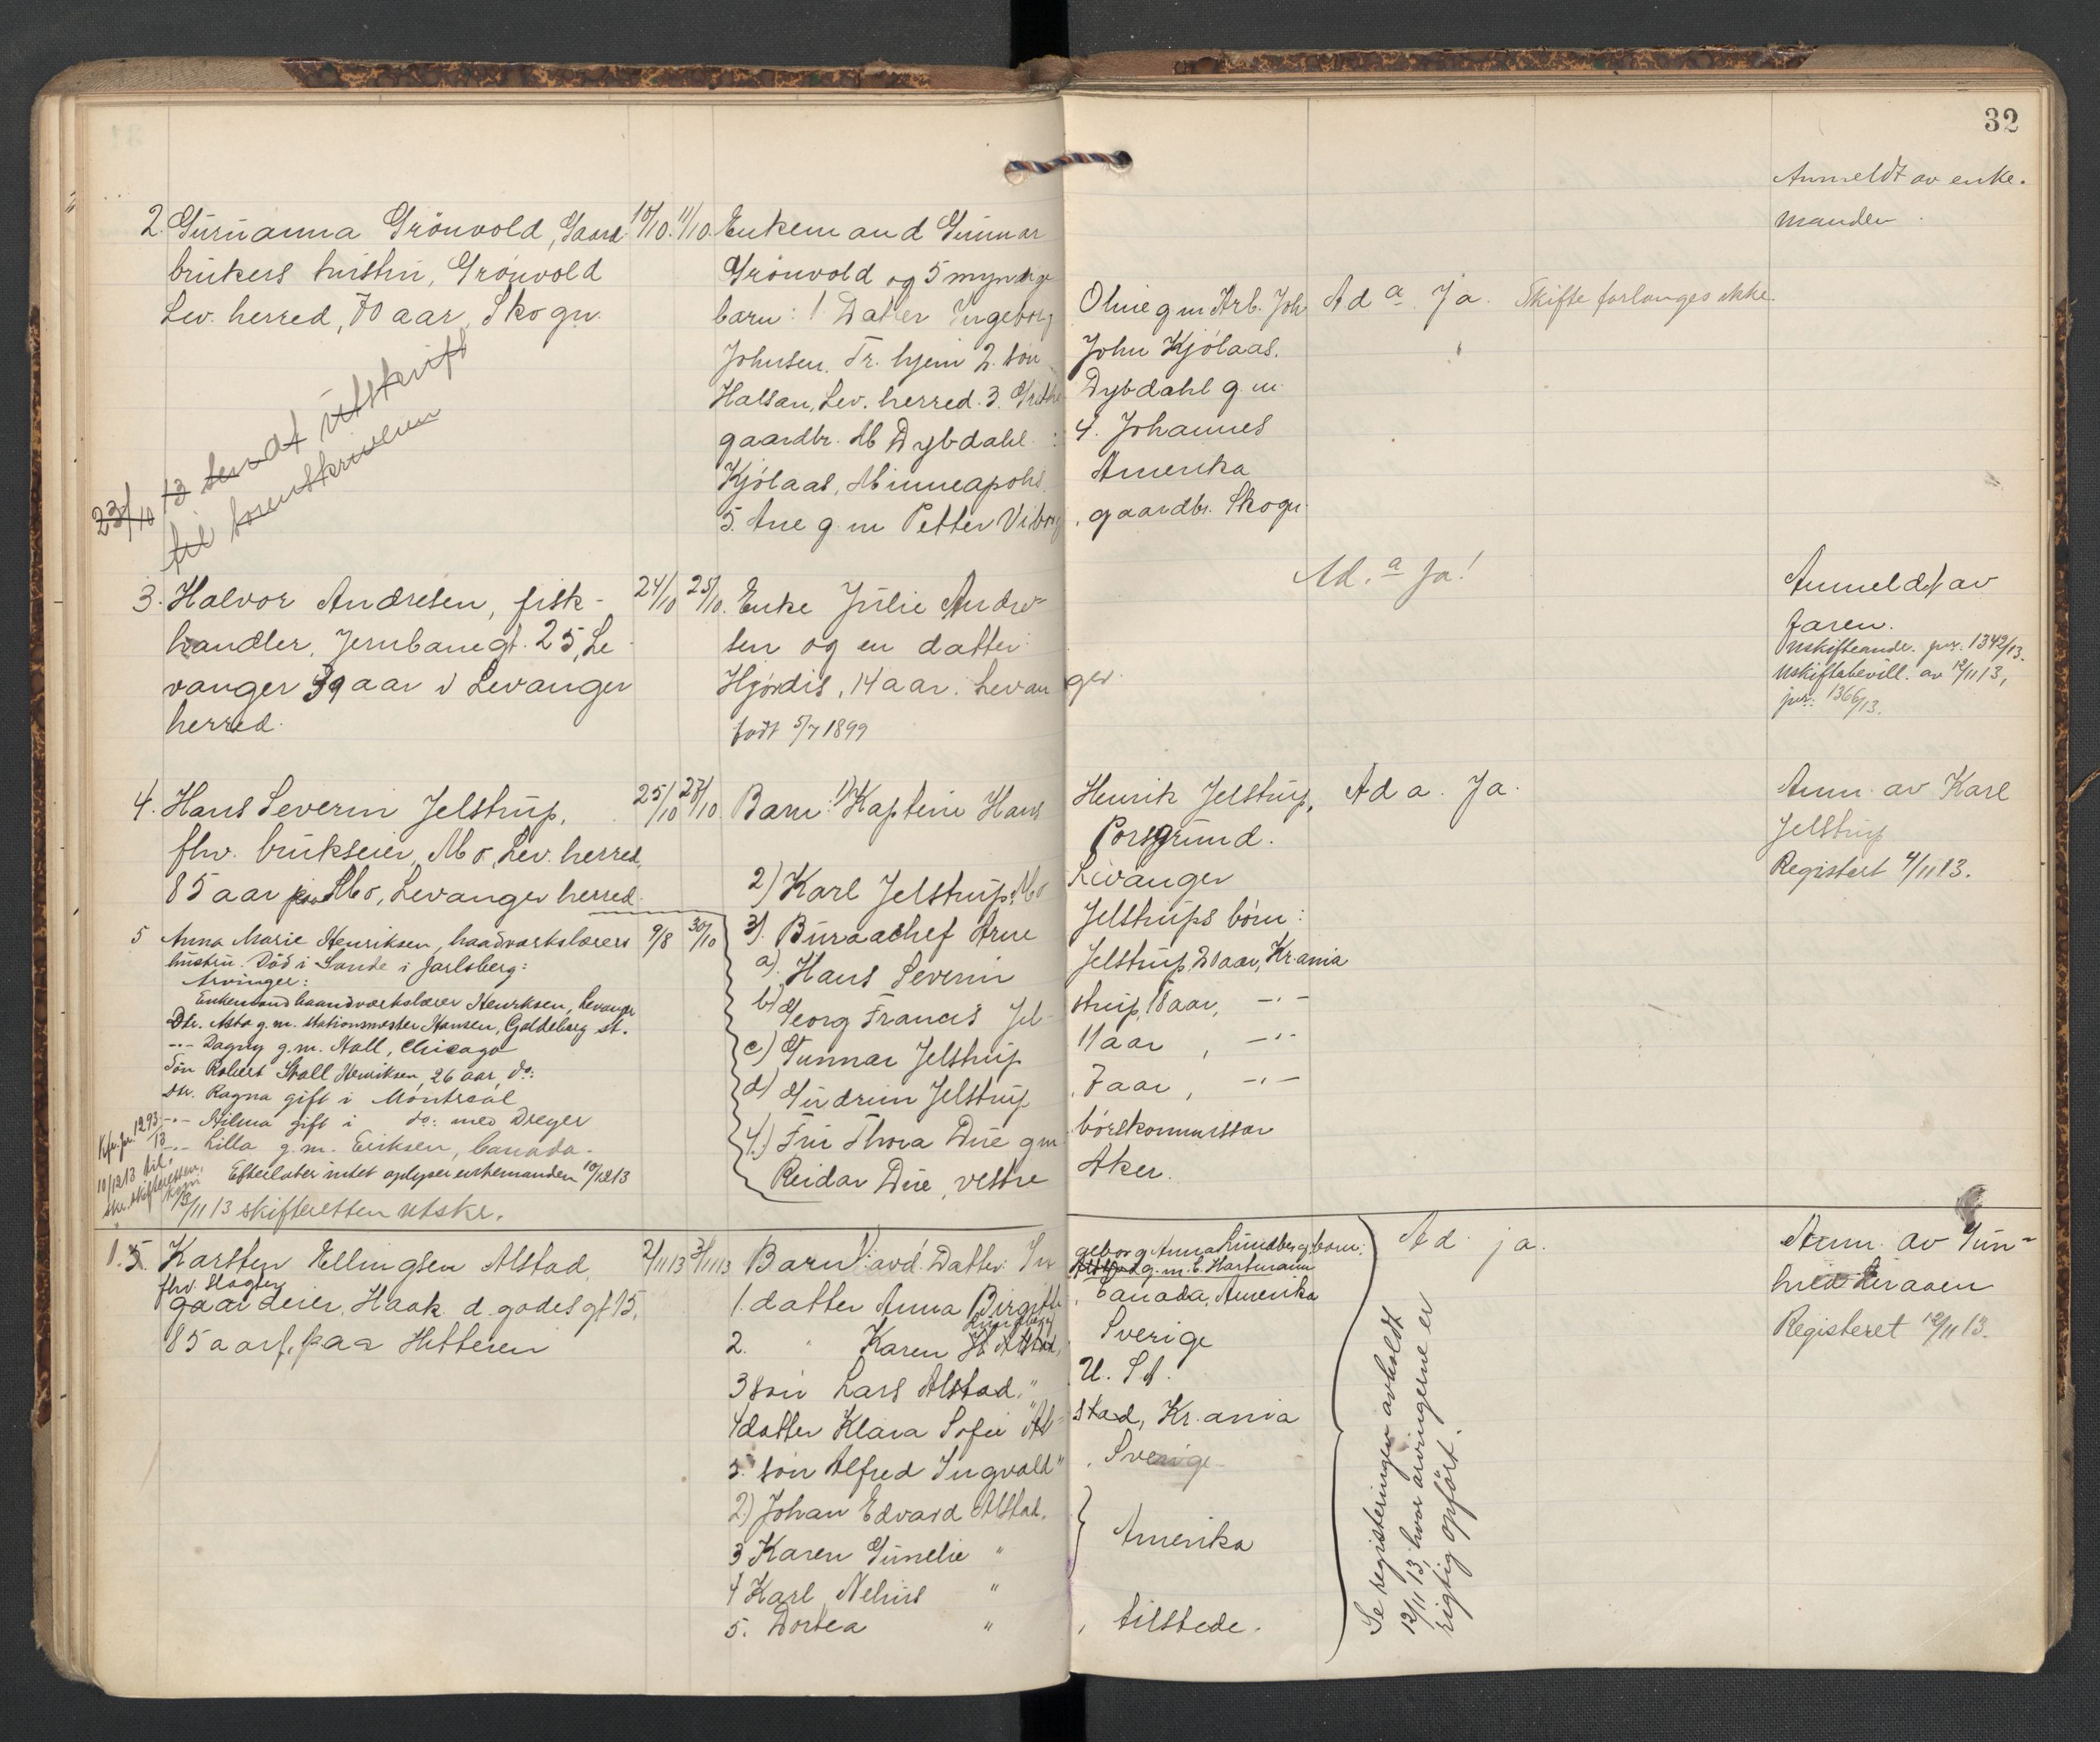 32
2. Gurianna Grönvold, Gaard
brukers hustru, Grönvold
Lev. herred, 70 aar, Skogn.
10/10. 11/10.
Enkemand Gunnar
Grönvold og 5 myndige
barn: 1 Datter Ingeborg
Oline g m Arb. Joh
Johnsen, Tr. hjem 2. sön
John Kjölaas,
Halsan, Lev. herred. 3. Grethe
Dybdahl g. m.
gaardbr. M Dybdahl :
4. Johannes
Kjölaas, Minneapolis,
Amerika
5. Ane g. m Petter Viborg
, gaardbr. Skogn.
Ad a. Ja. Skifte forlanges ikke.
Anmeldt av enke.
manden.
23/10 13 sendt utskrift
til sorenskriveren
3. Halvor Andresen, fisk-
handler, Jernbanegt. 25, Le
vanger 39 aar i Levanger
herred.
24/10 25/10.
Enke Julie Andre-
sen og en datter:
Hjördis, 14 aar. Levanger.
født 5/7 1899
Ad. a Ja!
Anmeldt av
faren.
Uskifteande. jnr. 1342/13.
Uskiftebevill. av 12/11 13,
jnr: 1366/13.
4. Hans Severin Jelstrup,
fhv. brukseier, Mo, Lev. herred,
85 aar paa Mo, Levanger herred.
25/10 27/10.
Barn: 1) Kaptein Hans
Henrik Jelstrup,
Porsgrund.
2) Karl Jelstrup, Mo
Levanger
3). Buraachef Arne
Jelstrups börn:
a). Hans Severin
Jelstrup, 20 aar, Kr.ania
b) Georg Francis Jel-
strup, 18 aar, -"-
c) Gunnar Jelstrup
11 aar , -"-
d) Gudrun Jelstrup
, 7 aar, -"-
4.) Fru Thora Due g m
börskommissær
Reidar Due, vestre
Aker.
Ad a. Ja.
Anm. av Karl
Jelstrup
Registert 4/11 13.
5 Anna Marie Henriksen, haandverkslærers
hustru. Död i Sande i Jarlsberg:
9/8 30/10
Arvinger:
Enkemand haandværkslærer Henriksen, Levanger
Dtr. Asta g. m. stationsmester Hansen, Galdeberg st.
-"- Dagny g. m. Hall, Chicago
Sön Robert Stall Henriksen, 26 aar, do:
Dtr. Ragna gift i Montreal
-"- Hilma gift i do: med Dreyer
-"- Lilla g. m. Eriksen, Canada.
Efterlater intet oplyser enkemanden 10/12 13
Kfr. jnr. 1293/13
10/12 13 til
13/11 13 skifteretten utskr.
1. 5. Karsten Ellingsen Alstad,
fhv. Skogn
gaardeier, Haak. d. godes gt 15,
85 aar f. paa Hitteren
2/11 13 3/11 13
Barn: 1. avd. Datter In
geborg Anna Lundbergs barn:
Alstad g. m. C. Hartmann
1. datter Anna Birgitte
, Canada, Amerika
Lundberg
2. " Karen H Alstad,
Sverige
3 sön Lars Alstad. "
U. St.
4 datter Klara Sofie Al-
stad, Kr.ania
5. sön Alfred Ingvald "
, Sverige
2) Johan Edvard Alstad,
3 Karen Gunelie "
Amerika
4 Karl Nelius "
5. Dortea "
, tilstede.
Se registeringen avholdt
12/11 13, hvor arvingerne er
rigtig opfört.
Ad. ja.
Anm. av Gun-
hild Kraaen
Registeret 12/11 13.